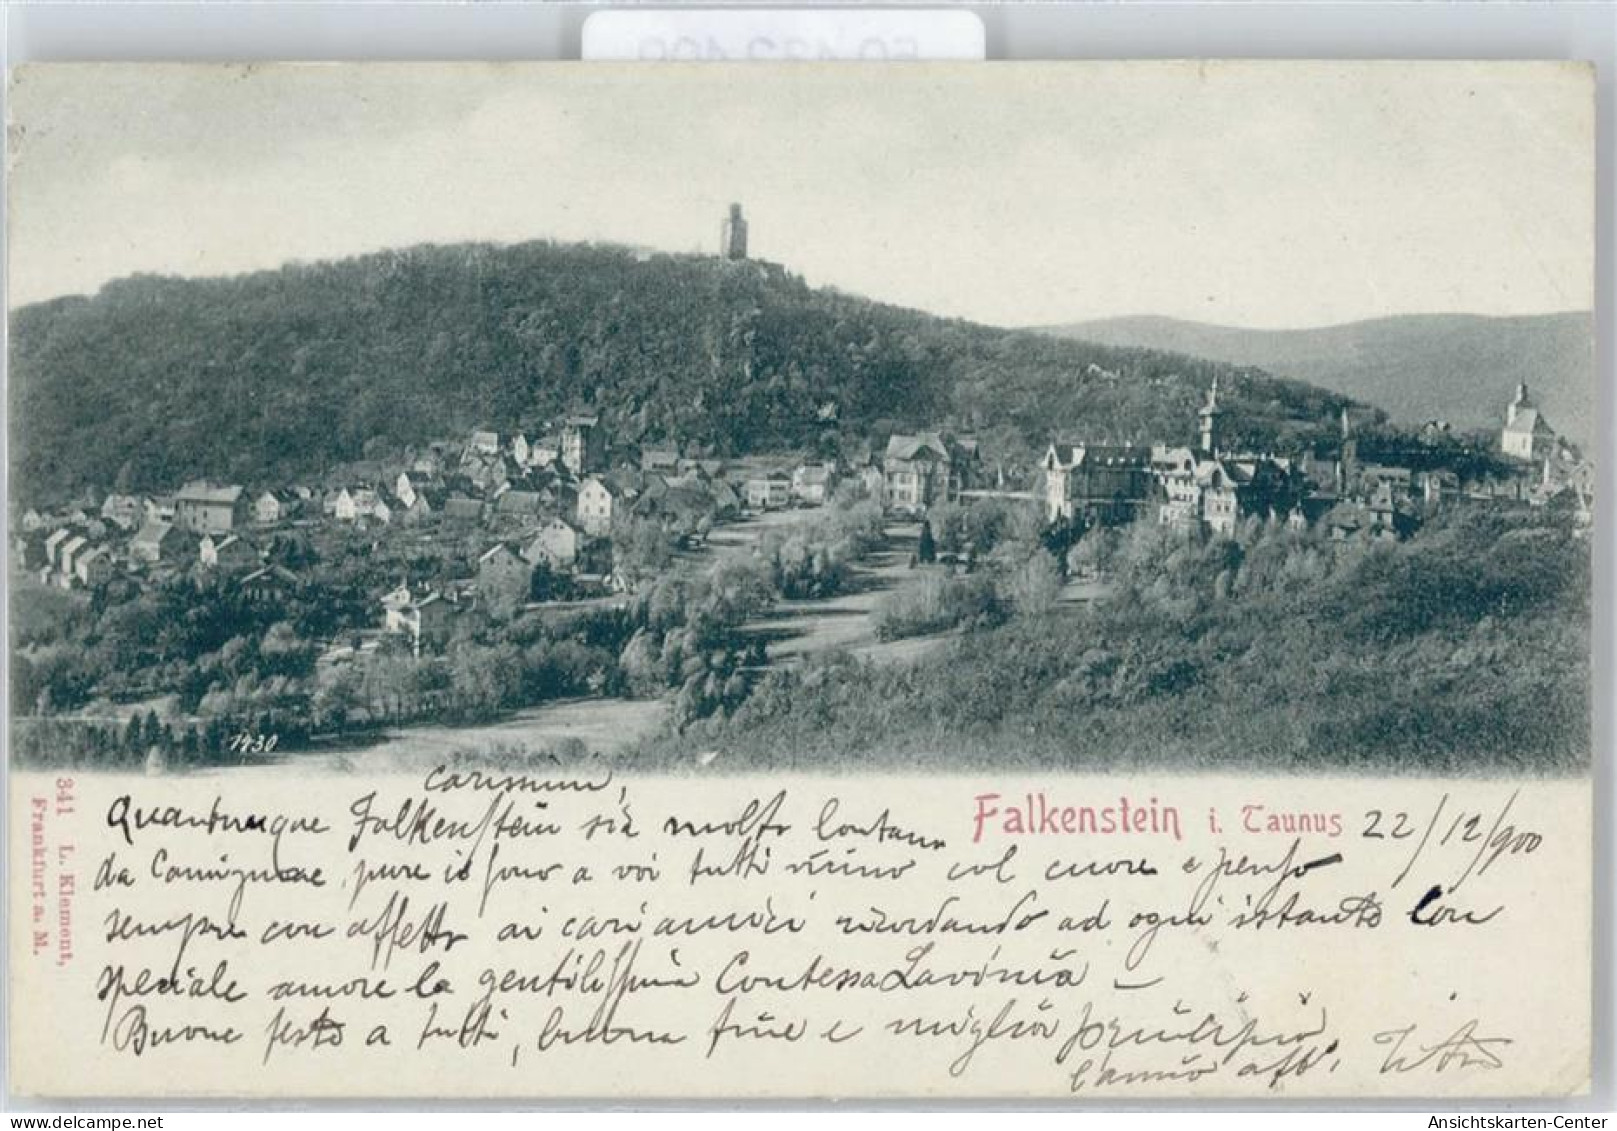 1430
341 L. Klement,
Frankfurt a. M.
Falkenstein i. Taunus 22/12/900
carissimi,
Quantunque Falkenstein sia molto lontano
da Camignone, pure io sono a voi tutti vicino col cuore e penso
sempre con affetto ai cari amici ricordando ad ogni istante con
speciale amore la gentilissima Contessa Lavinia –
Buone feste a tutti, buona fine e miglior principio
l'amico aff.